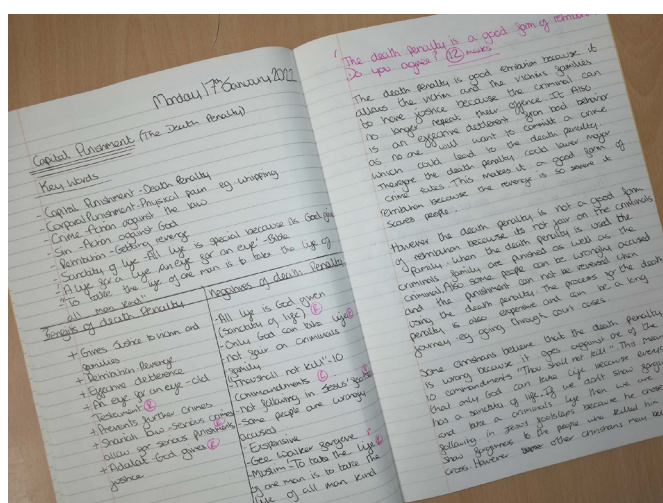 Monday 17th January 2022
Capital Punishment (The Death Penalty)
Key Words
- Capital Punishment - Death Penalty
- Corporal Punishment - Physical pain eg. whipping
- Crime - Action against the law
- Sin - Action against God
- Retribution - Getting revenge
- Sanctity of life - All life is special because its God given
- "A life for a life, an eye for an eye" - Bible
- "To take the life of one man is to take the life of
all man kind"
Benefits of death Penalty
+ Gives Justice to victim and
families
+ Retribution - Revenge
+ Effective deterrence
+ An eye for an eye - old
Testament (R)
+ Prevents further crimes
+ Shariah law - Serious crimes
allow for serious punishments
+ Adalat - God gives
justice
Negatives of death Penalty
- All life is God given
(sanctity of life) (R)
- Only God can take life (R)
- not fair on criminals
family
- "Thou shall not kill" - 10
commandments
- not following in Jesus'
- Some people are wrongly
accused
- Expensive
- Gee Walker forgave
- Muslim - "To take the life
of one man is to take the
life of all man kind
'The death penalty is a good form of
Do you agree? (12) marks
The death penalty is good retribution because it
allows the victim and the victims families
to have justice because the criminal can
no longer repeat their offence. It Also
is an effective deterrent from bad behavior
as no one will want to commit a crime
which could lead to the death penalty.
Therefore the death penalty could lower major
crime rates. This makes it a good form of
retribution because the revenge is so severe it
scares people.
However the death penalty is not a good form
of retribution because its not fair on the criminals
family. When the death penalty is used the
criminals family are punished as well as the
criminal. Also some people can be wrongly accused
and the punishment can not be reversed when
using the death penalty. The process for the death
penalty is also expensive and can be a long
journey eg going through court cases.
Some christians believe that the death penalty
is wrong because it goes against one of the
10 commandments "Thou shall not kill". This means
that only God can take life because everyone
has a sanctity of life. If we don't show forgiveness
and take a criminals life then we are
following in Jesus footsteps because he chose
show forgiveness to the people who killed him
cross. However other christians may